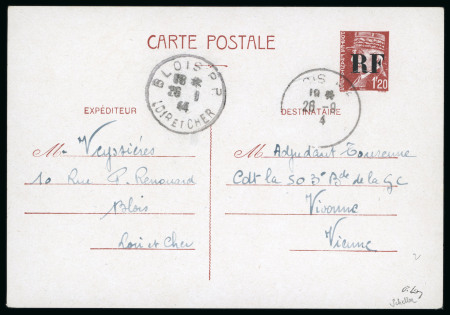 CARTE POSTALE
RF
1,20
BLOIS P.P
18 *
26 - 8
44
LOIR ET CHER
OIS P
19 *
26 - 8
4
EXPÉDITEUR
DESTINATAIRE
M. Veyssières
10 Rue P. Renouard
Blois
Loir et Cher
M Adjudant
Cdt la 50 3e Bde de la GC
Vivonne
Vienne